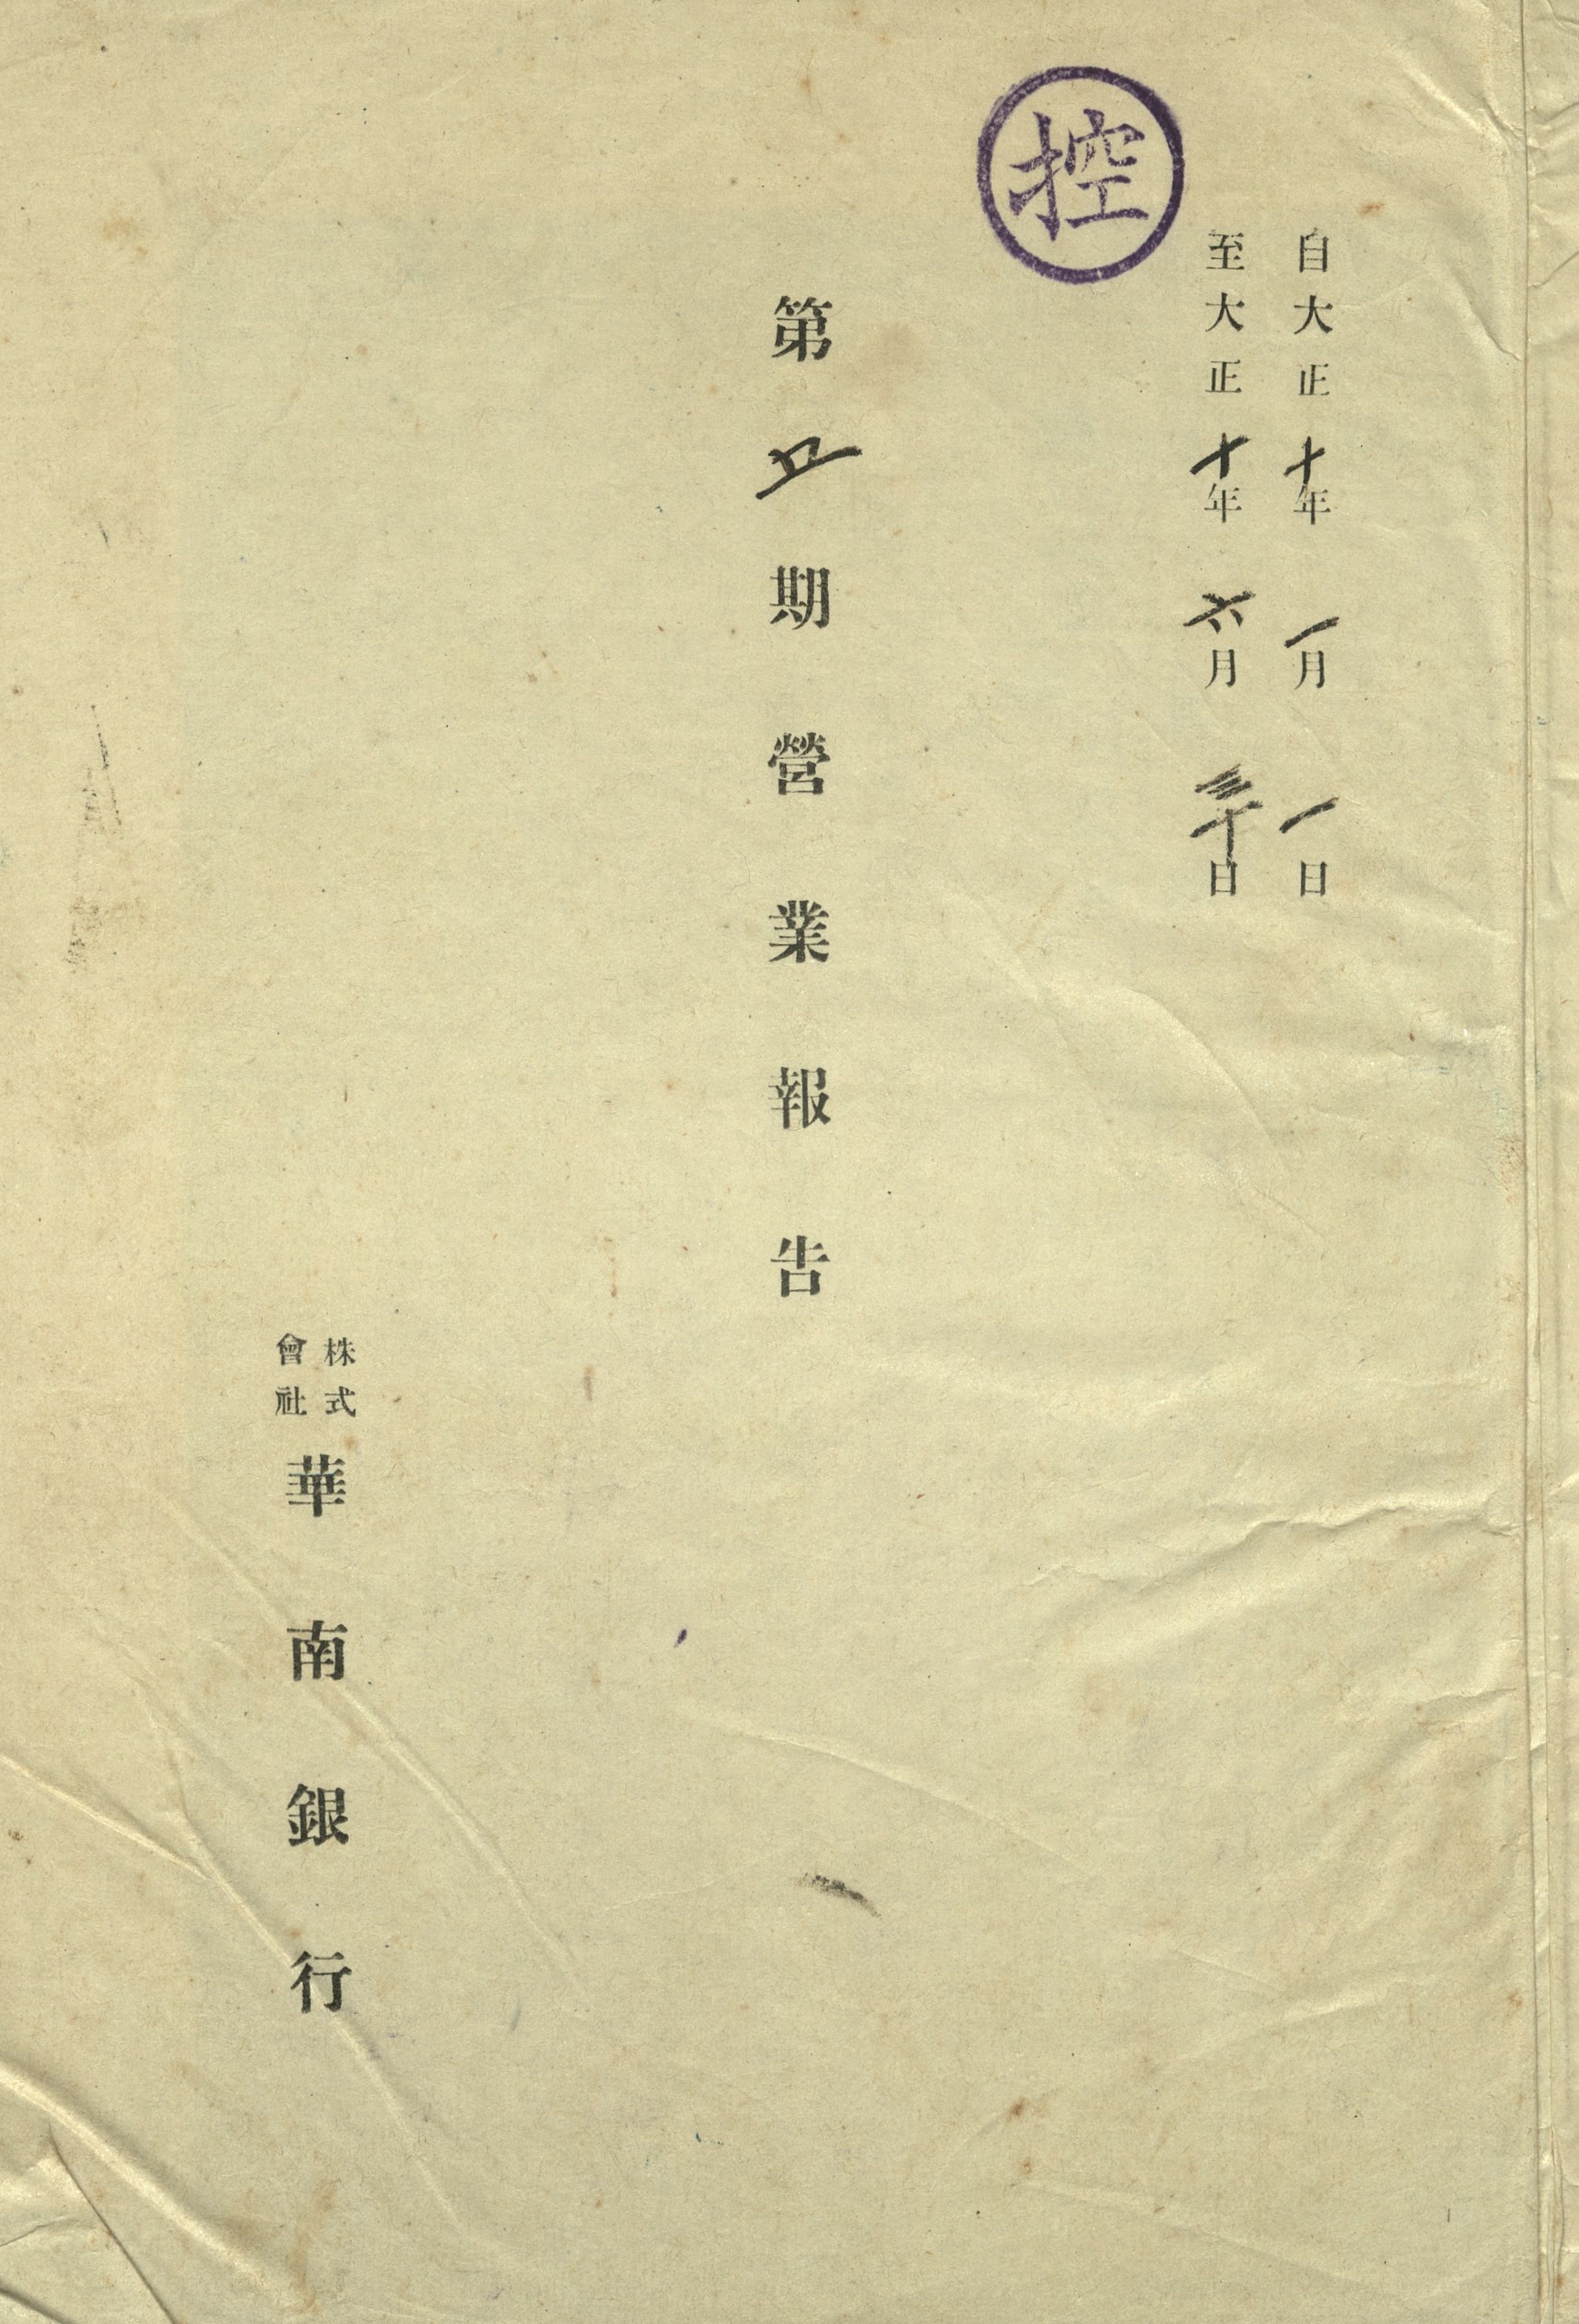 自大正十年一月一日
至大正十年六月三十日
控
第五期營業報告
株式會社華南銀行